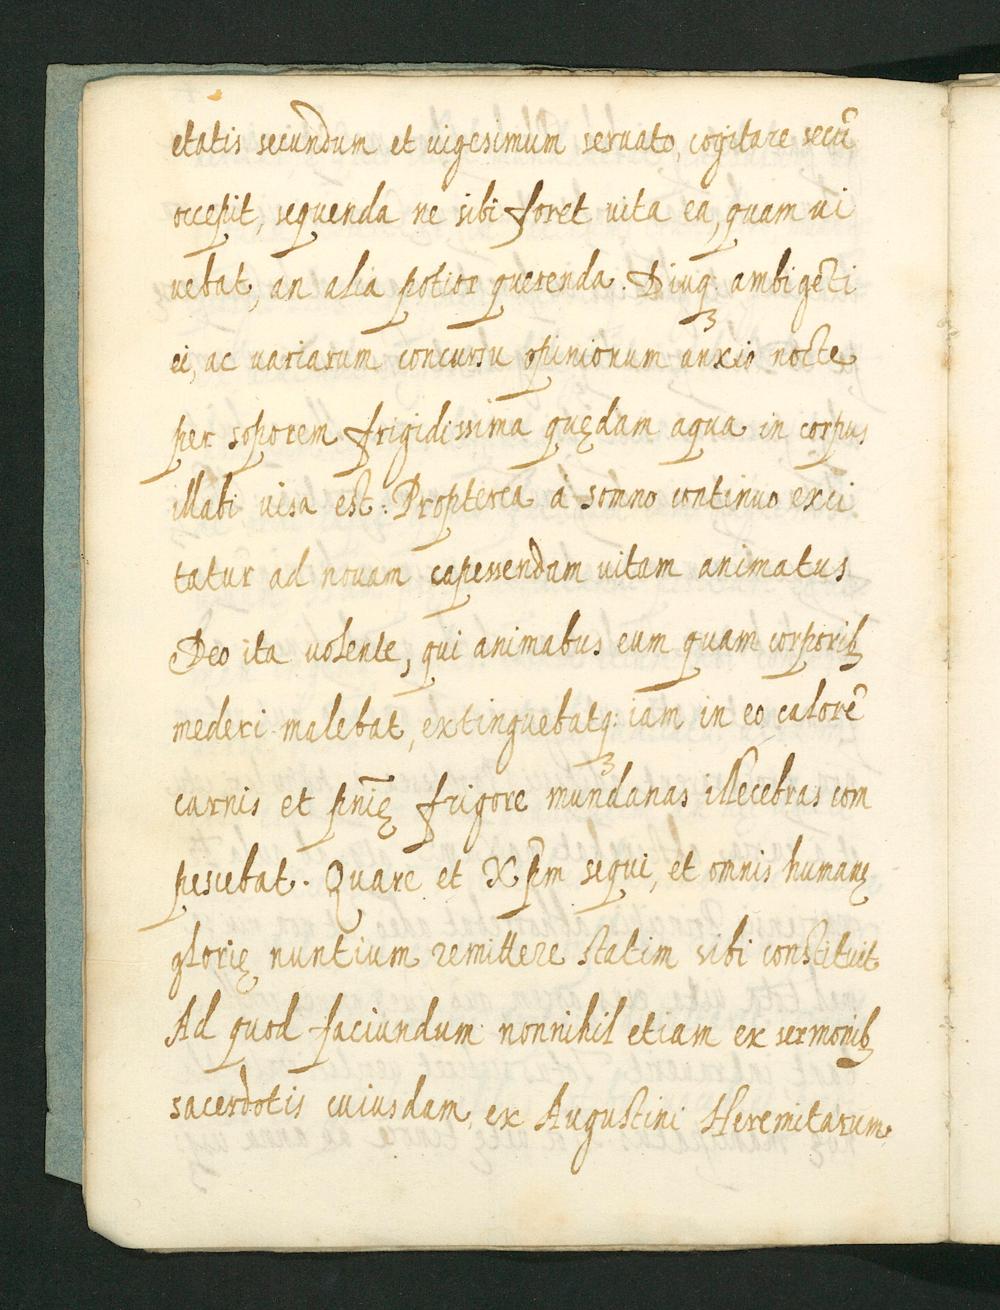 etatis secundum et uigesimum seruato, cogitare secũ
occepit, sequenda ne sibi foret uita ea, quam ui
uebat, an alia potior querenda. Diuq; ambigẽti
ei, ac uariarum concursu opinionum anxio nocte
per soporem frigidissima quędam aqua in corpus
illabi uisa est. Propterea à somno continuo exci
tatur ad nouam capessendam uitam animatus
Deo ita uolente, qui animabus eum quam corporib;
mederi malebat, extinguebatq; iam in eo calorẽ
carnis et pnię frigore mundanas illecebras com
pescebat. Quare et Xp̃m sequi, et omnis humanę
glorię nuntium remittere statim sibi constituit
Ad quod faciundum nonnihil etiam ex sermonib;
sacerdotis cuiusdam ex Augustini Heremitarum